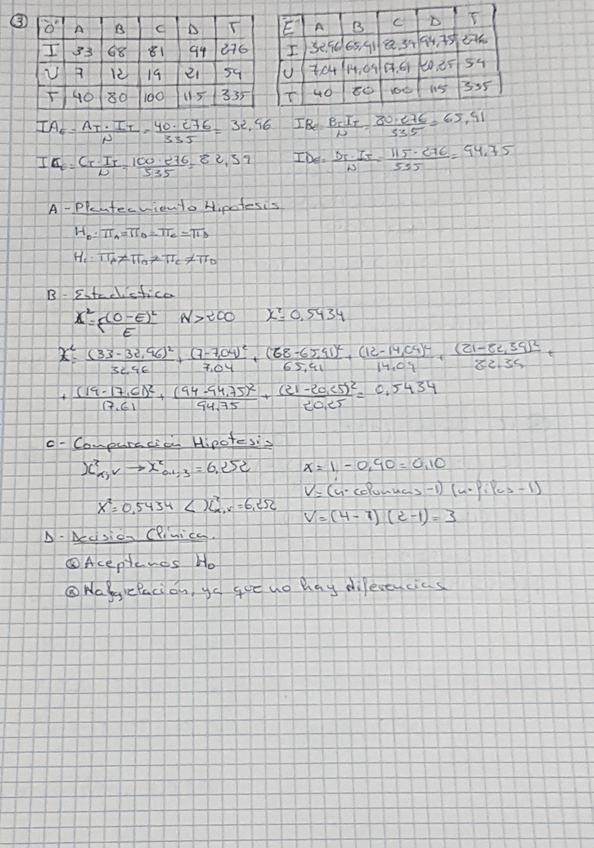 ③ O A B C D T
I 33 68 81 94 276
U 7 12 19 21 59
T 40 80 100 115 335
E A B C D T
I 32,96 65,91 82,39 94,75 276
U 7,04 14,09 17,61 20,25 59
T 40 80 100 115 335
IAe = AT·IT/N = 40·276/335 = 32,96 IBe = BT·IT/N = 80·276/335 = 65,91
ICe = CT·IT/N = 100·276/335 = 82,39 IDe = DT·IT/N = 115·276/335 = 94,75
A - Planteamiento Hipotesis
H₀: π_A = π_B = π_C = π_D
H₁: π_A ≠ π_B ≠ π_C ≠ π_D
B - Estadistico
X² = Σ(O-E)²/E N>200 X² = 0,5434
X² = (33-32,96)²/32,96 + (7-7,04)²/7,04 + (68-65,91)²/65,91 + (12-14,09)²/14,09 + (81-82,39)²/82,39 +
+ (19-17,61)²/17,61 + (94-94,75)²/94,75 + (21-20,25)²/20,25 = 0,5434
C - Comparación Hipotesis
X²α,v → X²0,1,3 = 6,252 α = 1 - 0,90 = 0,10
V = (nº columnas - 1) (nº filas - 1)
X² = 0,5434 < X²α,v = 6,252
V = (4-1) (2-1) = 3
D - Decisión Clínica
Aceptamos H₀
relación, ya que no hay diferencias